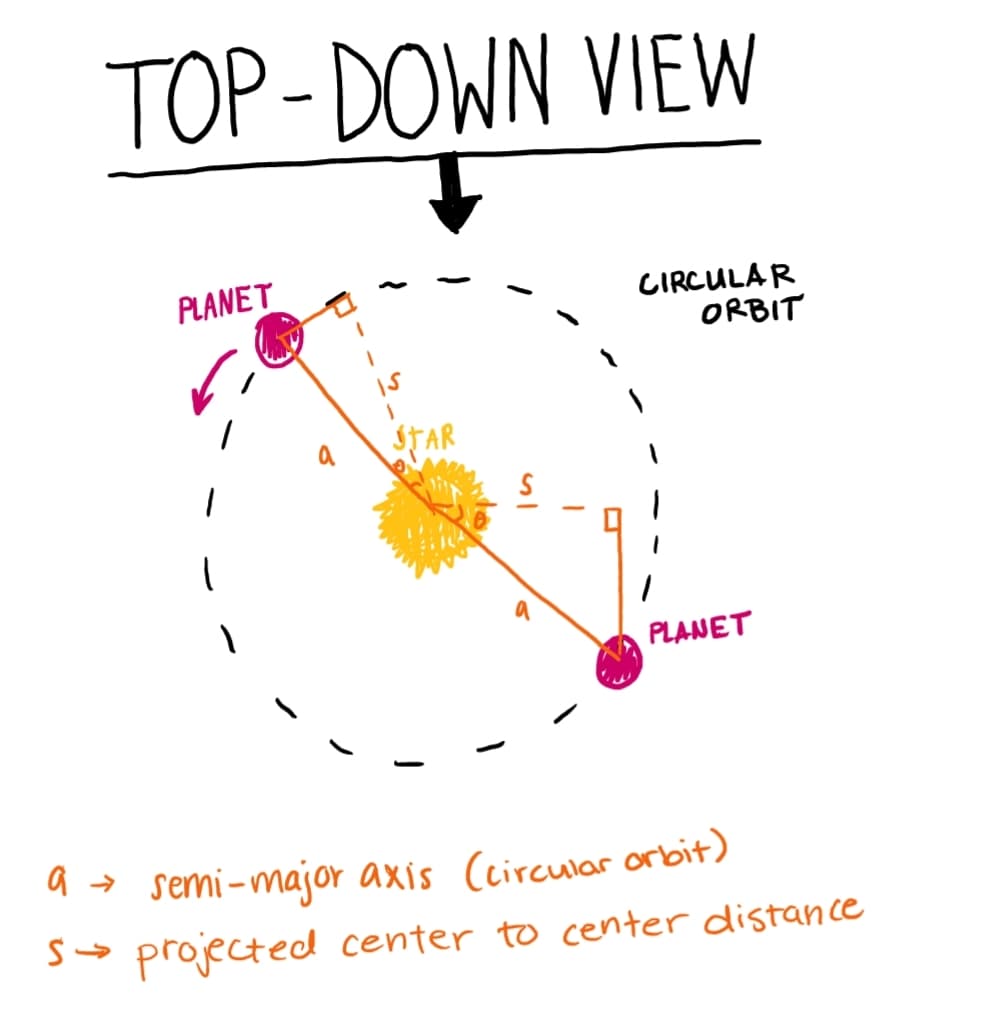 TOP-DOWN VIEW
PLANET
CIRCULAR
ORBIT
s
STAR
a
θ
s
θ
a
PLANET
a → semi-major axis (circular orbit)
s → projected center to center distance